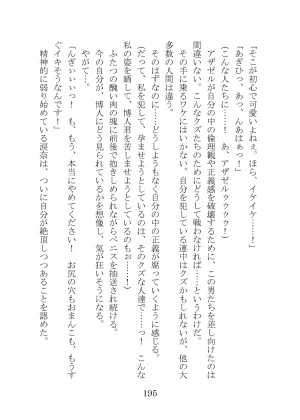 「そこが初心で可愛いよねぇ。ほら、イケイケ……！」
「あぎひっ、あっ、んあはぁっ！」
（こんな人たちに……！　あ、アザゼルゥゥゥゥ！）
　アザゼルが自分の中の倫理観や正義感を破壊するために、この男たちを差し向けたのは
間違いない。こんなクズたちのためにどうして戦わなければ……というわけだ。
　その手に乗るワケにはいかない。自分を犯している連中はクズかもしれないが、他の大
多数の人間は違う。
　そのはずなのに……どうしようもなく自分の中の正義が腐っていくように感じる。
（だって、私を犯して、孕ませようとしているのは、そのクズな人達で……っ！　こんな
私の姿を晒して、博人君を苦しませようとしているのもぉ……！）
　ふたつの醜い肉の塊に前後で抱きしめられながらペニスを抽送され続ける。
　今の自分が、博人にどう見られているかを想像し、気が狂いそうになる。
　やがて…。
「んぎぃぃぃっ！　も、もう、本当にやめてください！　お尻の穴もおまんこも、もうす
ぐイキそうなんです！」
　精神的に弱り始めている涙奈は、ついに自分が絶頂しつつあることを認めた。
195